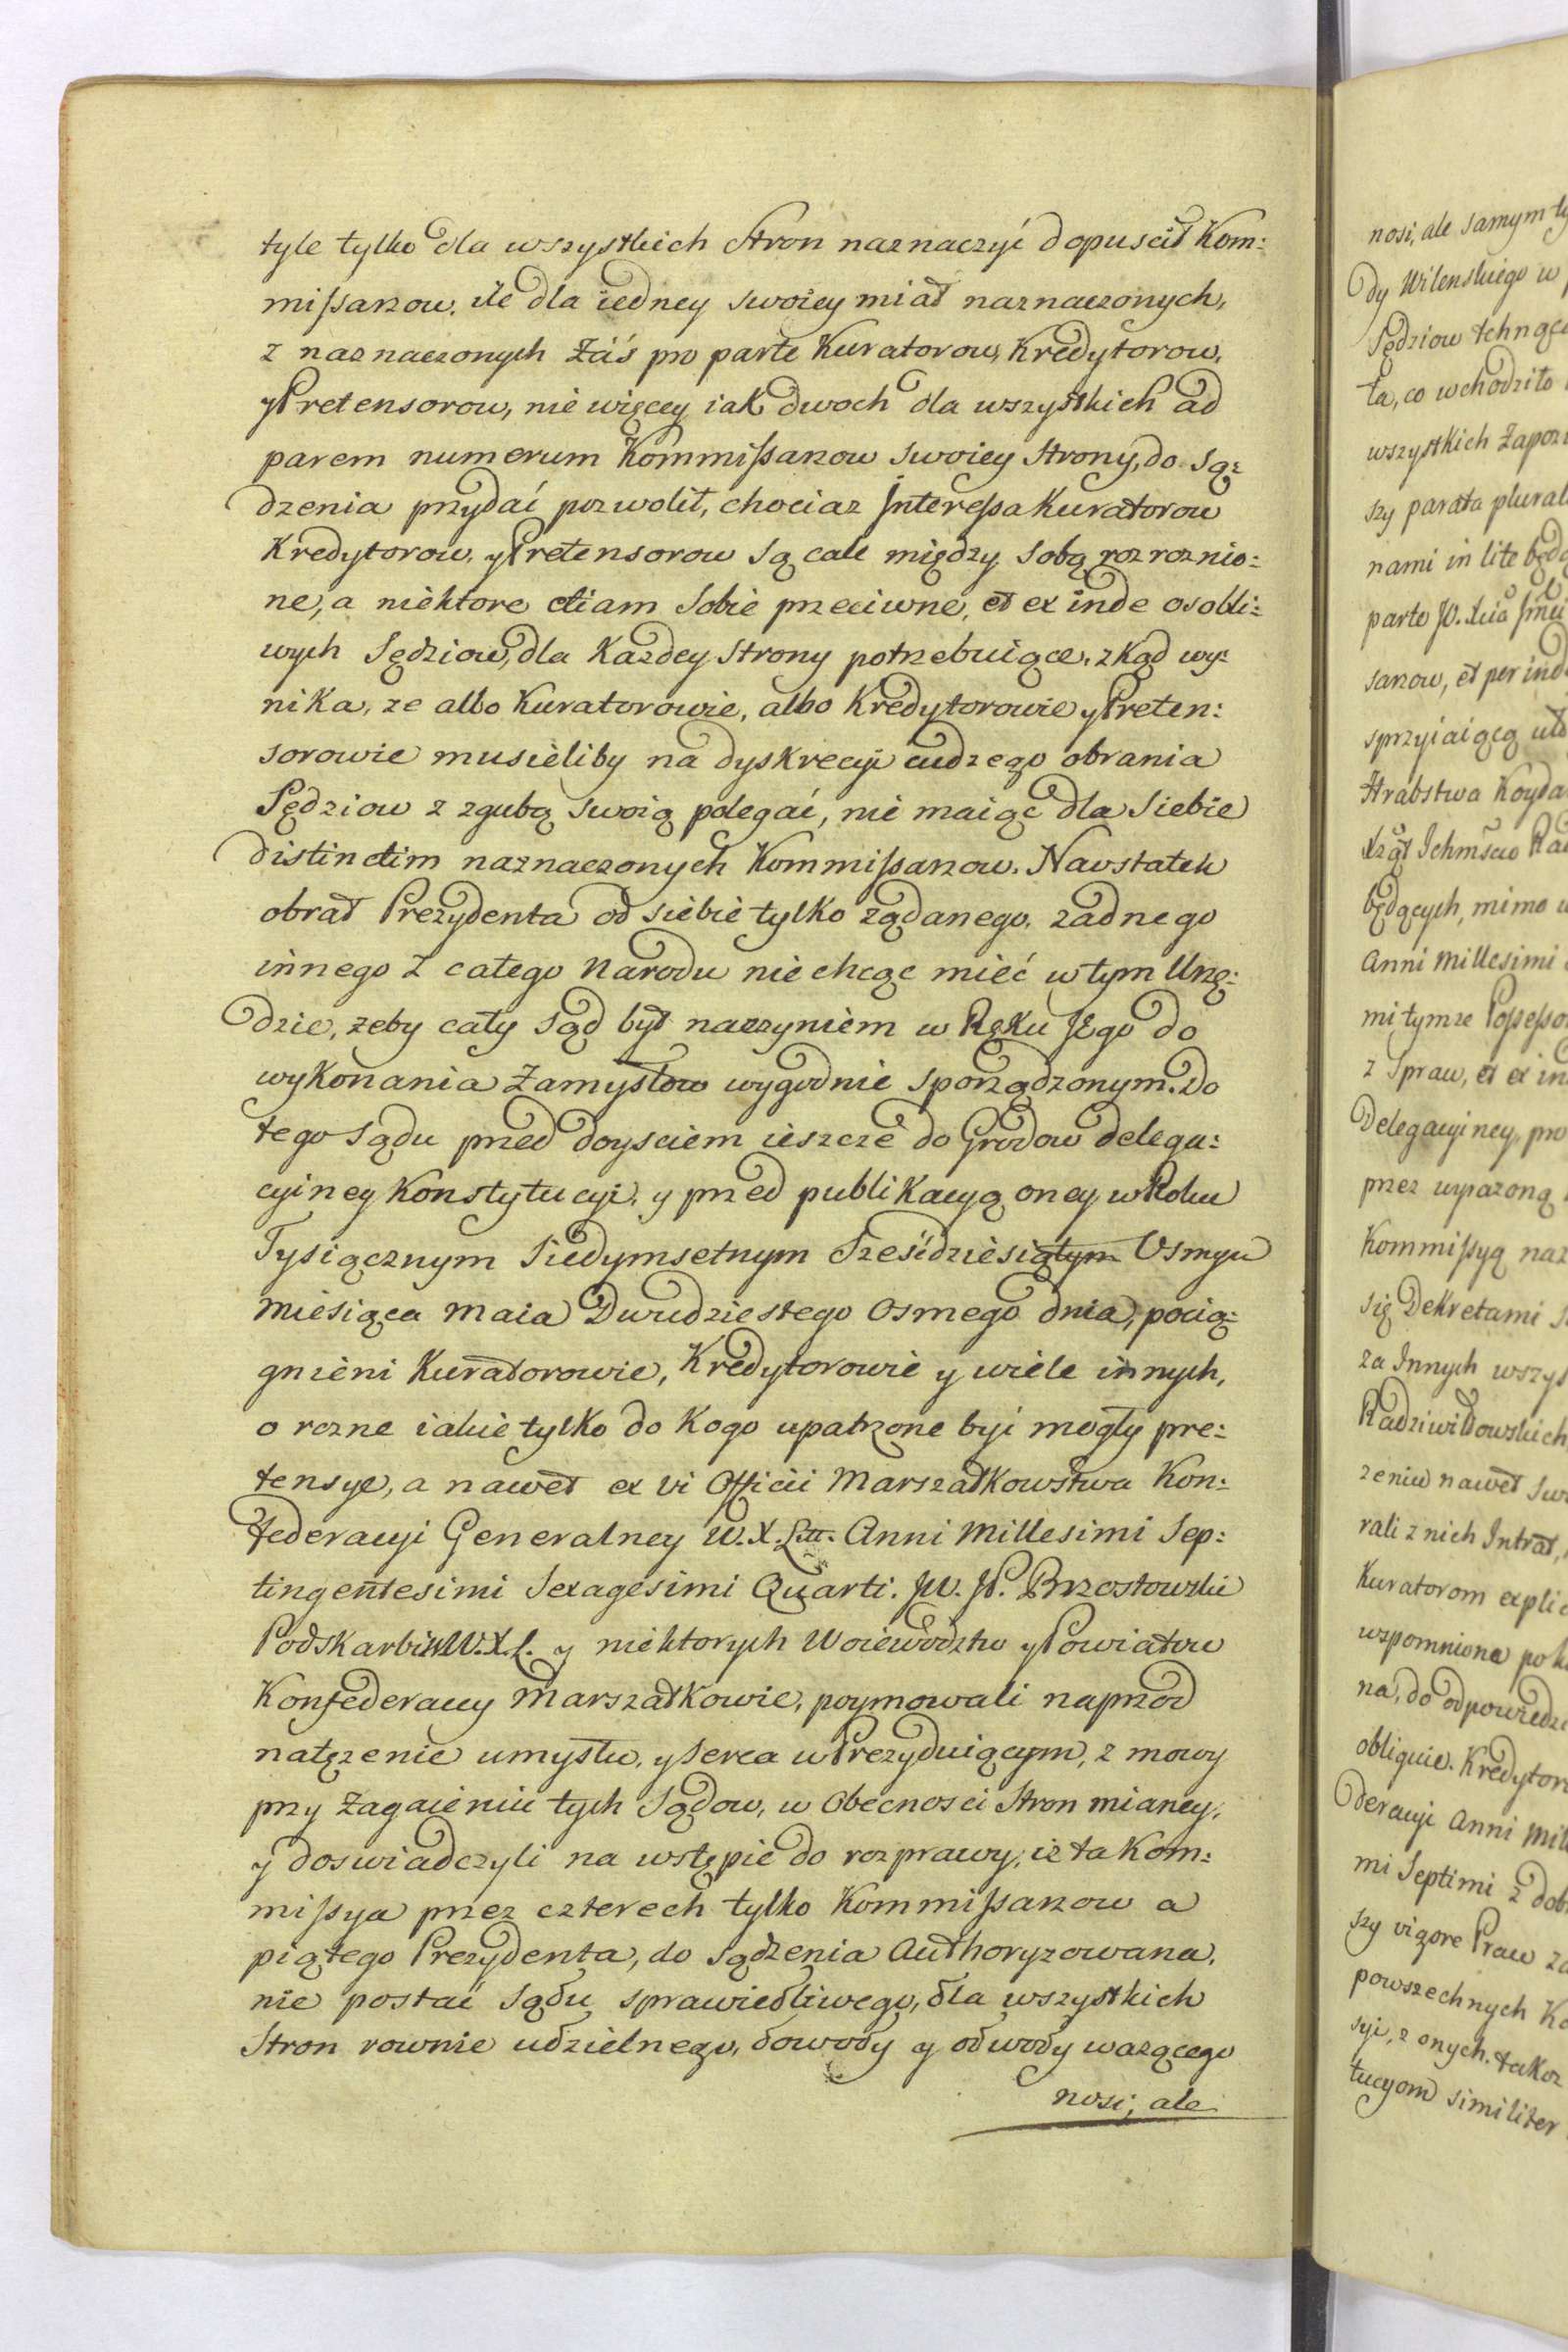 tyle tylko dla wszystkich Stron naznaczyć dopuscił Kom:
mißarzow. ile dla iedney swoiey miał naznaczonych,
z naznaczonych Záś pro parte Kuratorow, Kredytorow,
y Pretensorow, nie więcey iak dwoch dla wszystkich ad
parem numerum Kommißarzow swoiey Strony, do Są:
dzenia przydać pozwolił, chociaz Intereßa Kuratorow
Kredytorow, y Pretensorow Są cale między Sobą rozroznio:
ne, a niektore etiam Sobie przeciwne, et ex inde osobli:
wych Sędziow, dla Kazdey Strony potrzebuiące, zkąd wy:
nika, ze albo Kuratorowie, albo Kredytorowie y Preten:
sorowie musieliby na dyskrecyi cudzego obrania
Sędziow z zgubą swoią polegać, nie maiąc dla Siebie
distinctim naznaczonych Kommißarzow. Naostatek
obrał Prezydenta od siebie tylko ządanego, zadnego
innego z całego Narodu nie chcąc mieć w tym Urzę:
dzie, zeby cały Sąd był naczyniem w Ręku Jego do
wykonania Zamysłow wygodnie sporządzonym. Do
tego Sądu przed doysciem ieszcze do Grodow delega:
cyiney Konstytucyi, y przed publikacyą oney w Roku
Tysiącznym Siedymsetnym Sześćdziesiątym Osmym
Miesiąca Maia Dwudziestego Osmego dnia, pocią:
gnieni Kuratorowie, Kredytorowie y wiele innych,
o rozne iakie tylko do Kogo upatrzone być mogły pre:
tensye, a nawet ex vi Officii Marszałkowstwa Kon:
federacyi Generalney W. X. Litt. Anni Millesimi Sep:
tingentesimi Sexagesimi Quarti. JW. JP. Brzostowski
Podskarbi W. W. X. L. y niektorych Woiewodztw y Powiatow
Konfederacyy Marszałkowie, poymowali naprzod
natęzenie umysłu, y Serca w Prezyduiącym, z mowy
przy Zagaieniu tych Sądow, w Obecnosci Stron mianey,
y doswiadczyli na wstępie do rozprawy, iz ta Kom:
mißya przez czterech tylko Kommißarzow a
piątego Prezydenta, do Sądzenia Authoryzowana,
nie postać Sądu sprawiedliwego, dla wszystkich
Stron rownie udzielnego, dowody y odwody wazącego
nosi, ale
nosi, ale samym
dy Wilenskiego w
Sędziow tchnące
ła, co wchodziło
wszystkich Zapoz
szy parata plural
nami in lite będą
sarzow, et per ind
sprzyiaiącą
Hrabstwa Koyda
będących, mimo
Anni Millesimi
mi tymze Poßeßo
z Spraw, et ex in
Delegacyiney, pro
przez wyrazoną
Kommißyą naz
się Dekretami
za Innych wszys
Radziwiłłowskich
zeniu nawet Sw
rali z nich Intrat,
Kuratorom explic
wspomniona po
na, do odpowiedzi
oblique. Kredytor
deracyi Anni Mil
mi Septimi z dob
szy vigore Praw za
powszechnych Ko
syi, z onych, takoz
tucyom similiter